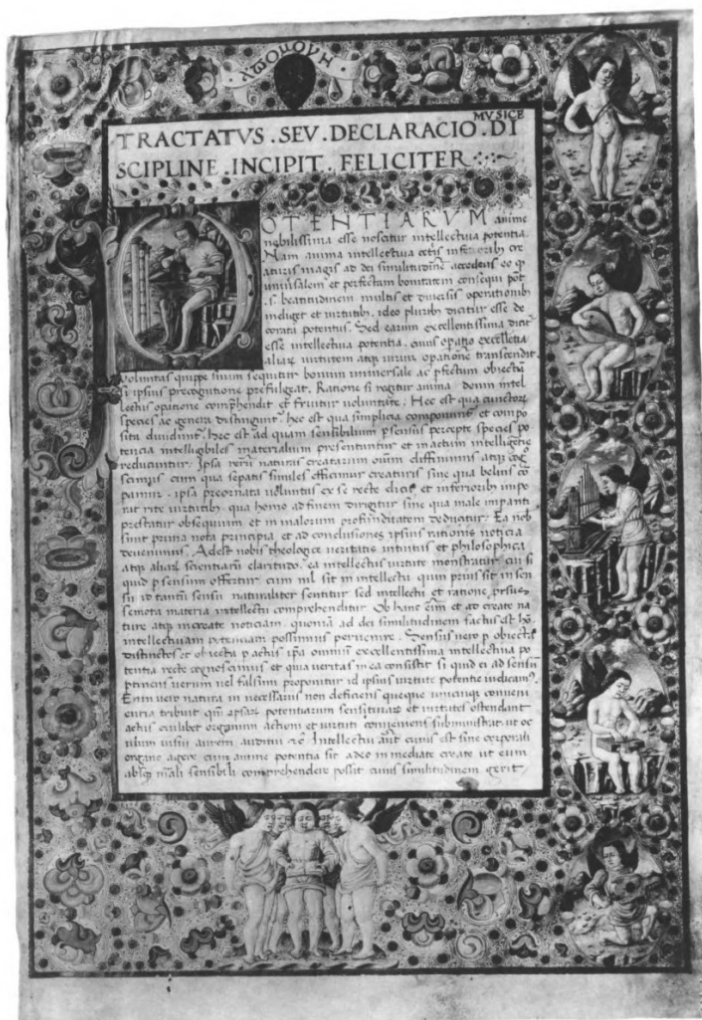 ΛΩΟΜΟΥΗ
MVSICE
TRACTATVS . SEV . DECLARACIO . DI
SCIPLINE . INCIPIT . FELICITER
OTENTIARVM anime
nobilissima esse noscitur intellectiua potentia.
Nam anima intellectiua cetis inferiorib cre
aturis magis ad dei similitudinē accedens eo q
uniuersalem et perfectam bonitatem consequi pōt
.s. beatitudinem multis et diuersis operationib
indiget et uirtutib, ideo plurib dicitur esse de
corata potentiis. Sed earum excellentissima dicit
esse intellectiua potentia, cuius opatio excellētia
aliaꝝ uirtutem atq uirium opationē transcendit.
Voluntas quippe suum sequitur bonum uniuersale ac pfectum obiectū
i ipsius precognitione prefulgeat. Ratione si regitur anima donum intel
lectus opatione comphendit et fruitur uoluntate. Hec est qua cunctorꝝ
species ac genera distinguit, hec est qua simplicia componunt et compo
sita diuidunt, hec est ad quam sensibilium p sensus percepte species po
tencia intelligibiles materialium presentuntur et in actum intelligētie
reducuntur. Ipsa rerū naturas creatarum oium diffinimus atq cog
scimus cum qua sepatis similes efficimur creaturis sine qua beluis cō
pamur. ipsa preornata uoluntas ex se recte elicit et inferiorib impe
rat rite uirtutib, qua homo ad finem dirigitur sine qua male impanti
prestatur obsequium et in malorum profunditatem deducitur. Ea nob
sunt prima nota principia, et ad conclusiones ipsius rationis noticia
deuenimus. Adest nobis theologice ueritatis intuitus et philosophica
atq aliaꝝ scientiarū claritudo. ea intellectus uirtute monstratur cui si
quid p sensum offertur cum nil sit in intellectu quin prius sit in sen
su id tantū sensu naturaliter sentitur sed intellectu et ratione, prsius
semota materia intellectu comprehenditur. Ob hanc eim et ad create na
ture atq increate noticiam, quoniā ad dei similitudinem factus est hō
intellectiuam potenciam possumus peruenire. Sensus uero p obiectꝝ
distinctos et obiecta p actus ipā omniū excellentissima intellectiua po
tentia recte cognoscimus et quia ueritas in ea consistit si quid ei ad sensū
ptinens uerum uel falsum proponitur id ipsius uirtute potentie iudicam9.
Enim uero natura in necessariis non deficiens queque unicuiq conueni
entia tribuit qm ipsaꝝ potentiarum sensitiuaꝝ et uirtutes ostendunt
actus cuilibet organum actioni et uirtuti conueniens subministrat. ut oc
ulum uisui aurem auditui rē Intellectui aūt cuius est sine corporali
organo agere cum anime potentia sit a deo in mediate create ut eum
absq māli sensibili comprehendere possit cuius similitudinem gerit,